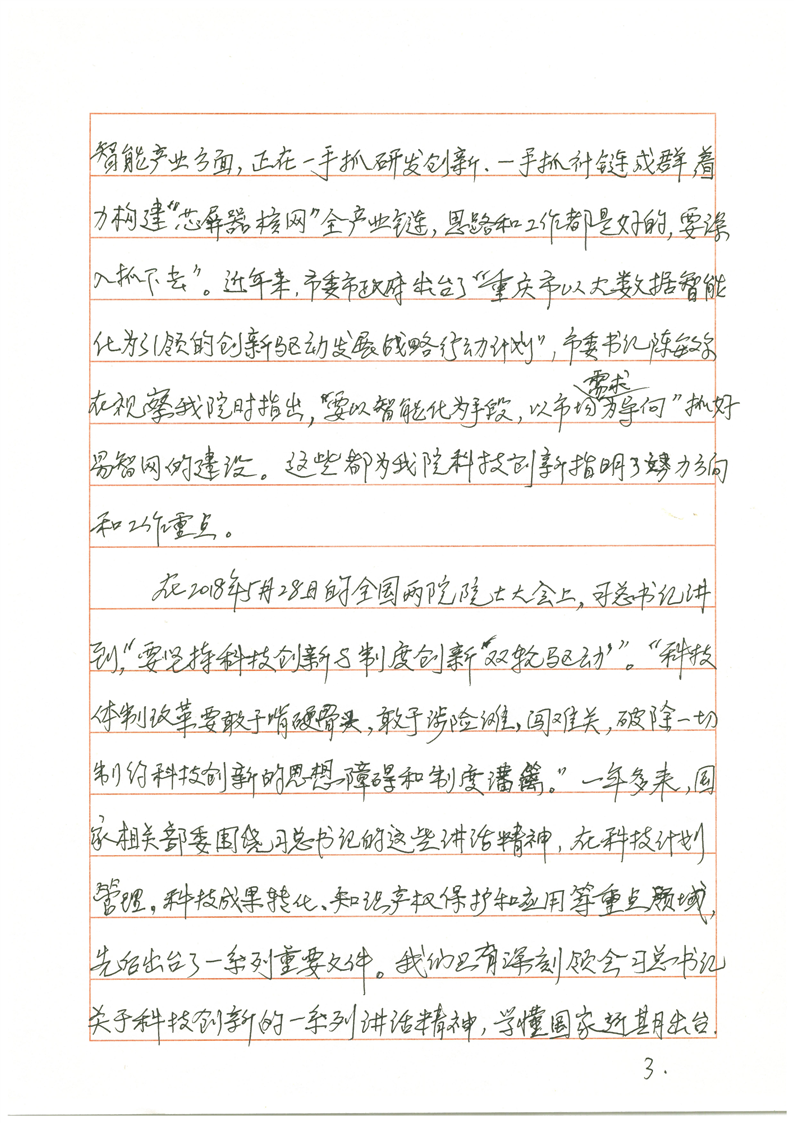 智能产业方面，正在一手抓研发创新．一手抓补链成群，着
力构建“芯屏器核网”全产业链，思路和工作都是好的，要深
入抓下去”。近年来，市委市政府出台了“重庆市以大数据智能
化为引领的创新驱动发展战略行动计划”，市委书记陈敏尔
需求
在视察我院时指出，“要以智能化为手段，以市场为导向”抓好
易智网的建设。这些都为我院科技创新指明了努力方向
和工作重点。
在2018年5月28日的全国两院院士大会上，习总书记讲
到，“要坚持科技创新与制度创新“双轮驱动””。“科技
体制改革要敢于啃硬骨头，敢于涉险滩，闯难关，破除一切
制约科技创新的思想障碍和制度藩篱。”一年多来，国
家相关部委围绕习总书记的这些讲话精神，在科技计划
管理，科技成果转化、知识产权保护和应用等重点领域，
先后出台了一系列重要文件。我们只有深刻领会习总书记
关于科技创新的一系列讲话精神，学懂国家近期出台．
3．